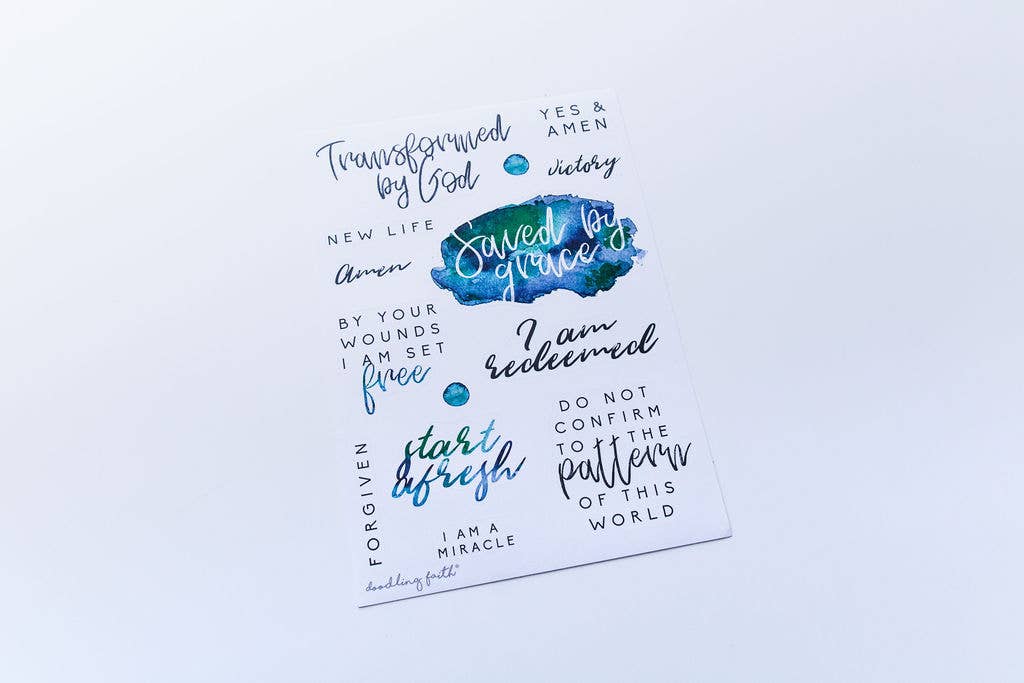 Transformed
by God
YES &
AMEN
victory
NEW LIFE
Saved by
grace
amen
BY YOUR
WOUNDS
I AM SET
free
I am
redeemed
DO NOT
CONFIRM
TO THE
pattern
OF THIS
WORLD
start
afresh
FORGIVEN
I AM A
MIRACLE
doodling faith®